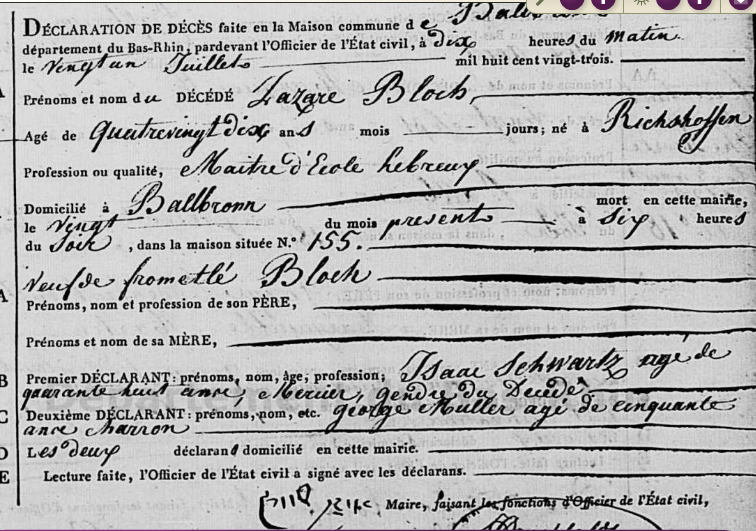 DÉCLARATION DE DÉCÈS faite en la Maison commune de
département du Bas-Rhin, pardevant l'Officier de l'État civil, à dix heures du matin
le vingt un Juillet mil huit cent vingt-trois.
Prénoms et nom du DÉCÉDÉ Lazare Bloch,
Agé de Quatrevingt dix ans mois jours; né à Richshoffen
Profession ou qualité, Maitre d'Ecole hebreux
Domicilié à Ballbronn mort en cette mairie,
le vingt du mois present à six heures
du soir, dans la maison située N.° 155.
Veuf de frometlé Bloch
Prénoms, nom et profession de son PÈRE,
Prénoms et nom de sa MÈRE,
Premier DÉCLARANT: prénoms, nom, âge, profession; Isaac Schwartz agé de
quarante huit ans, Mercier, gendre du Decedé
Deuxième DÉCLARANT: prénoms, nom, etc. george Muller agé de cinquante
ans charron
Les deux déclarans domicilié en cette mairie.
Lecture faite, l'Officier de l'État civil a signé avec les déclarans.
Maire, faisant les fonctions d'Officier de l'État civil,